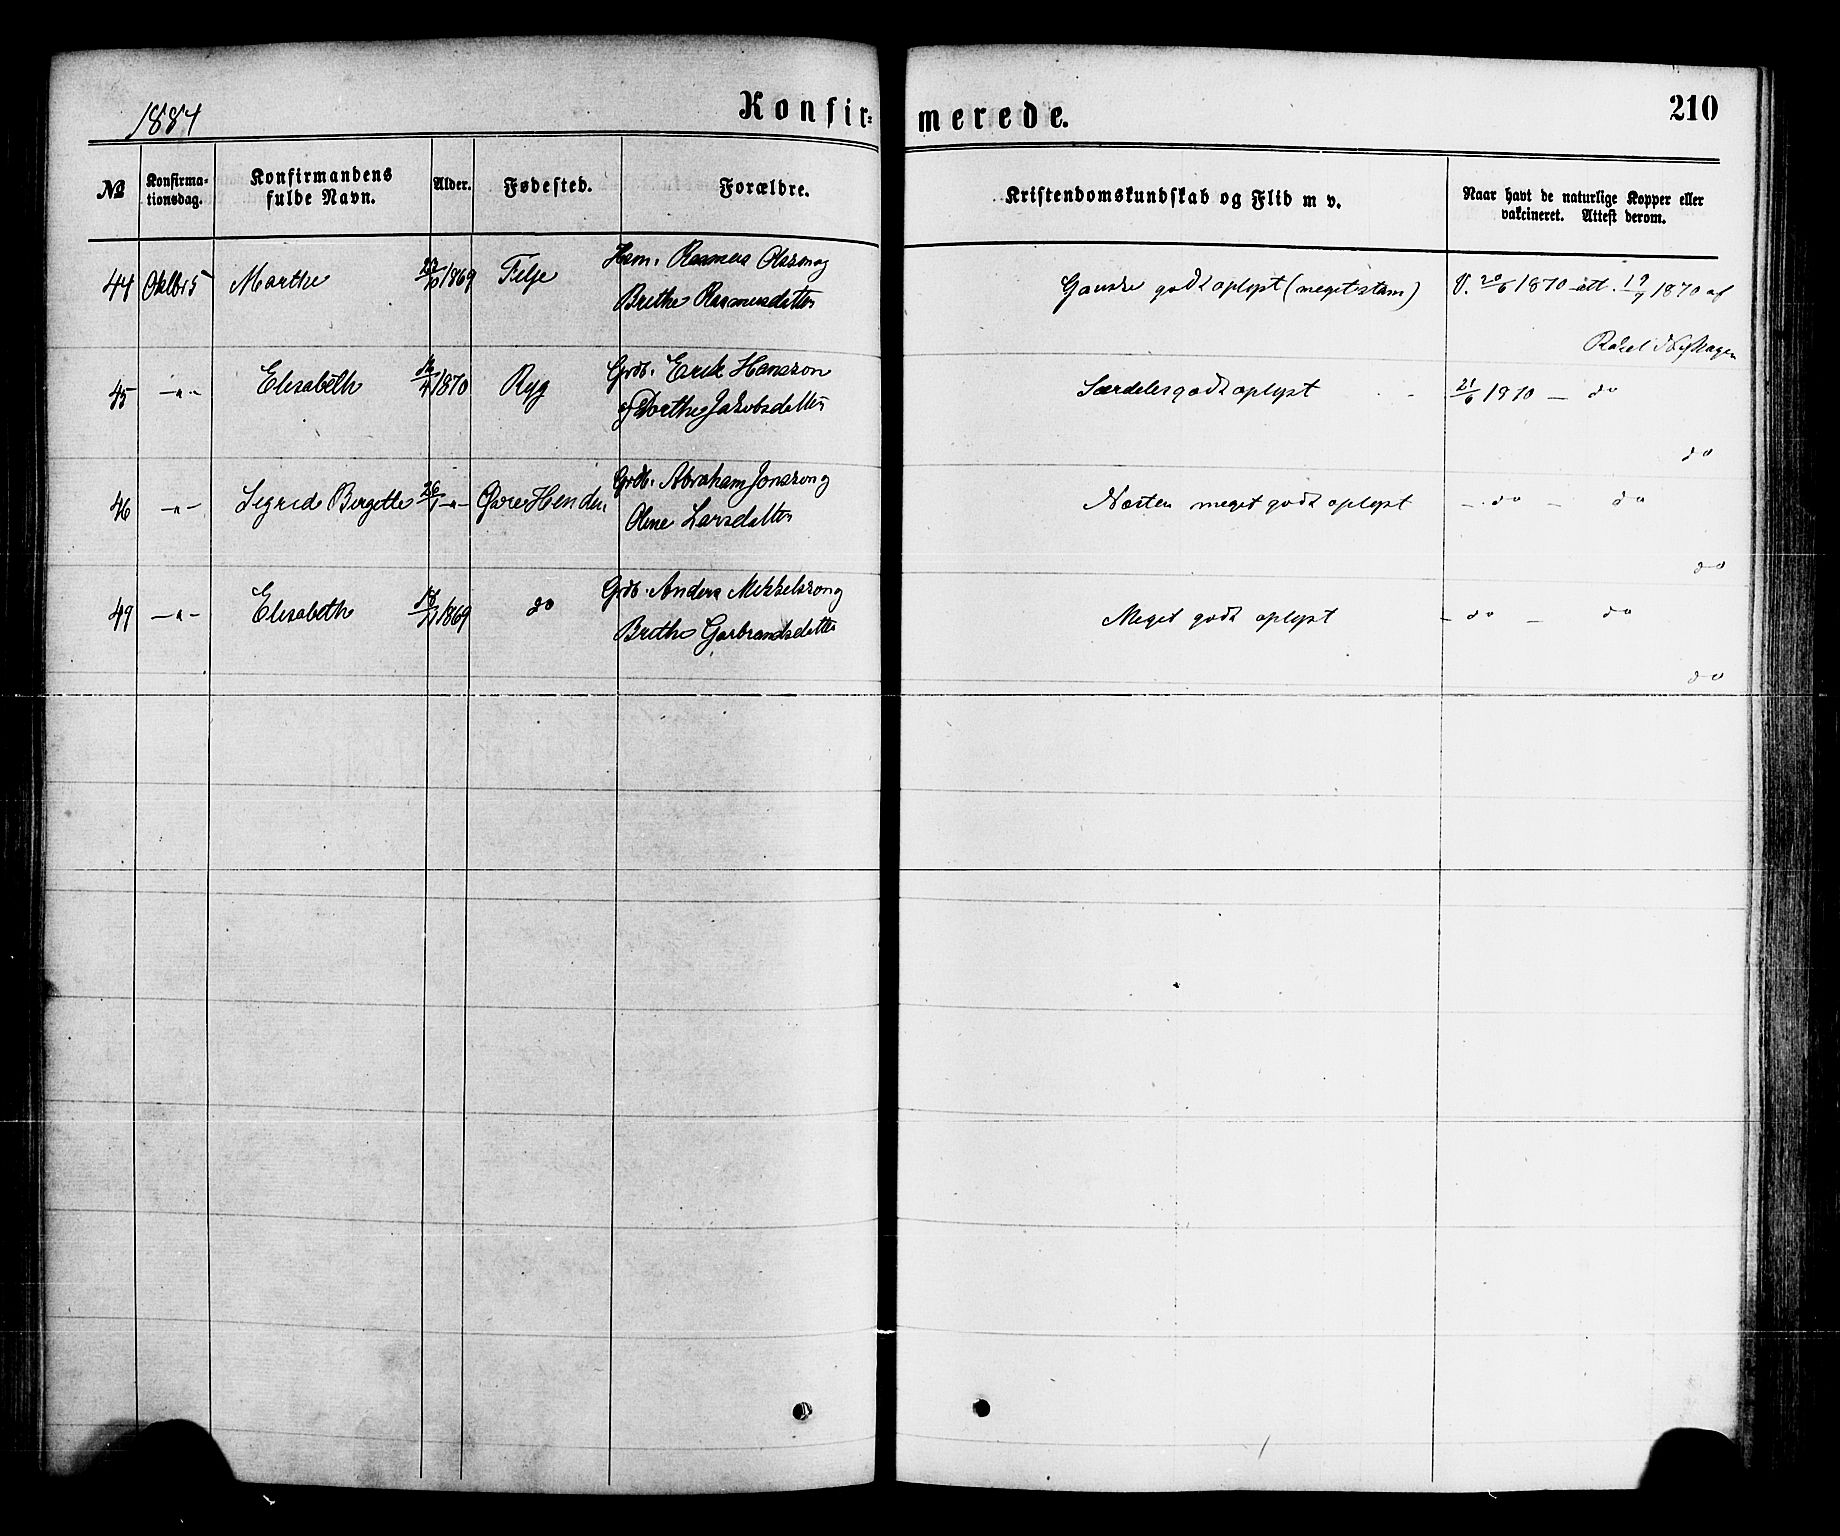 1884
Konfir=
merede.
210
No
Konfirma-
tionsdag.
Konfirmandens
fulde Navn.
Alder.
Fødested.
Forældre.
Kristendomskundskab og Flid m v.
Naar havt de naturlige Kopper eller
vakcineret. Attest derom.
44 Oktbr 5 Marthe 1869 Felje Hsm. Rasmus Olsson og
Brithe Rasmusdatter
Ganske godt oplyst (meget stam) V. 20/6 1870 att. 19/9 1870 af
45 —"— Elisabeth 1870 Ryg Grdb. Erik Hansson
og Dorthe Jakobsdatter
Særdeles godt oplyst 21/6 1870 — do
do
46 —"— Sigrid Bergette 26/1 —"— Øvre Henden Grdb. Abraham Jonsson og
Oline Larsdatter
Næsten meget godt oplyst — do — do
do
49 —"— Elisabeth 1869 do Grdb. Anders Mikkelsson og
Brithe Garbrandsdatter
Meget godt oplyst — do — do
do